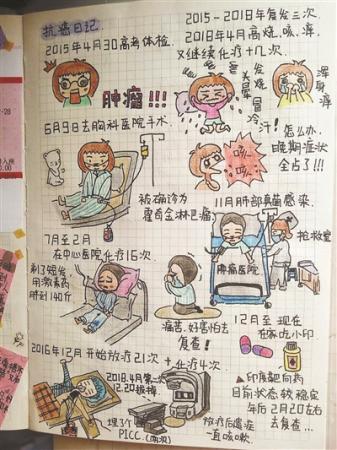 抗癌日记.
2015年4月30高考体检.
肿瘤!!!
6月9日去胸科医院手术.
被确诊为
霍奇金淋巴瘤.
7月至2月
在中心医院化疗16次.
剃了短发
用激素药
胖到140斤
痛苦.好害怕去
复查!
2016年12月开始放疗21次+化疗4次
2018.4月第二次
12.20拔掉.
埋3个
PICC.(两次)
放疗后遗症
一直咳嗽.
2015-2018年复发三次.
2018年4月高烧.咳.痒.
又继续化疗十几次.
发烧
头晕
冒冷汗!
浑身痒
怎么办.
晚期症状
全占了!!!
咳
咳
11月肺部真菌感染.
抢救室
肿瘤医院
12月至现在
在家吃小印
印度靶向药
目前状态较稳定
年后2月20左右
去复查...
-28